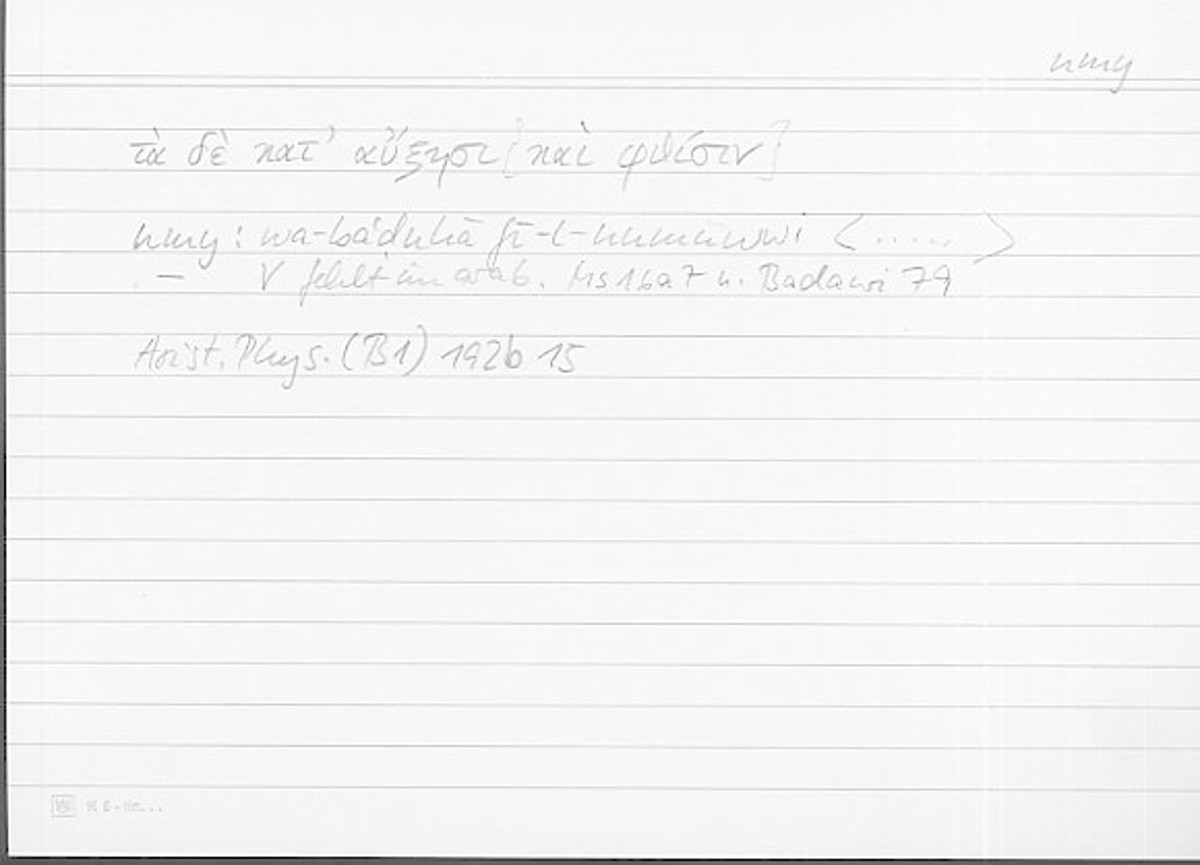 nmy
τὰ δὲ κατ' αὔξησι[καὶ φθίσιν]
nmy: wa-baʿḍuhā fī-l-numūwwi <.....>
— V fehlt im arab. Ms 16a7 u. Badawi 79
Arist. Phys. (B1) 192b 15